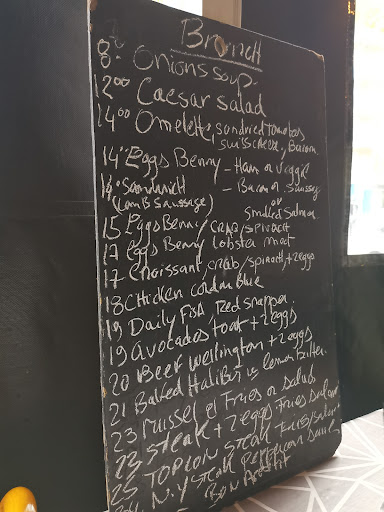 Brunch
8- Onions soup
12⁰⁰ Caesar salad
14⁰⁰ Omelette sundried tomatoes
swiss cheese, Bacon
14⁰⁰ Eggs Benny - Ham or Veggie
- Bacon or Sausage
14⁰⁰ Sandwich
(Lamb Saussage)
or
Smoked Salmon
15 Eggs Benny CRAB/spinach
17 Eggs Benny lobster meat
17 Croissant, crab/spinach, + 2 eggs
18 Chicken cordon Blue
19 Daily Fish Red snapper
19 avocados toast + 2 eggs
20 Beef Wellington + 2 eggs
21 Baked Halibut lemon butter
23 mussel Fries or salad
23 Steak + 2 eggs Fries
25 TOP LOIN STEAK Fries/salad
N.Y STEAK
BON APPETIT